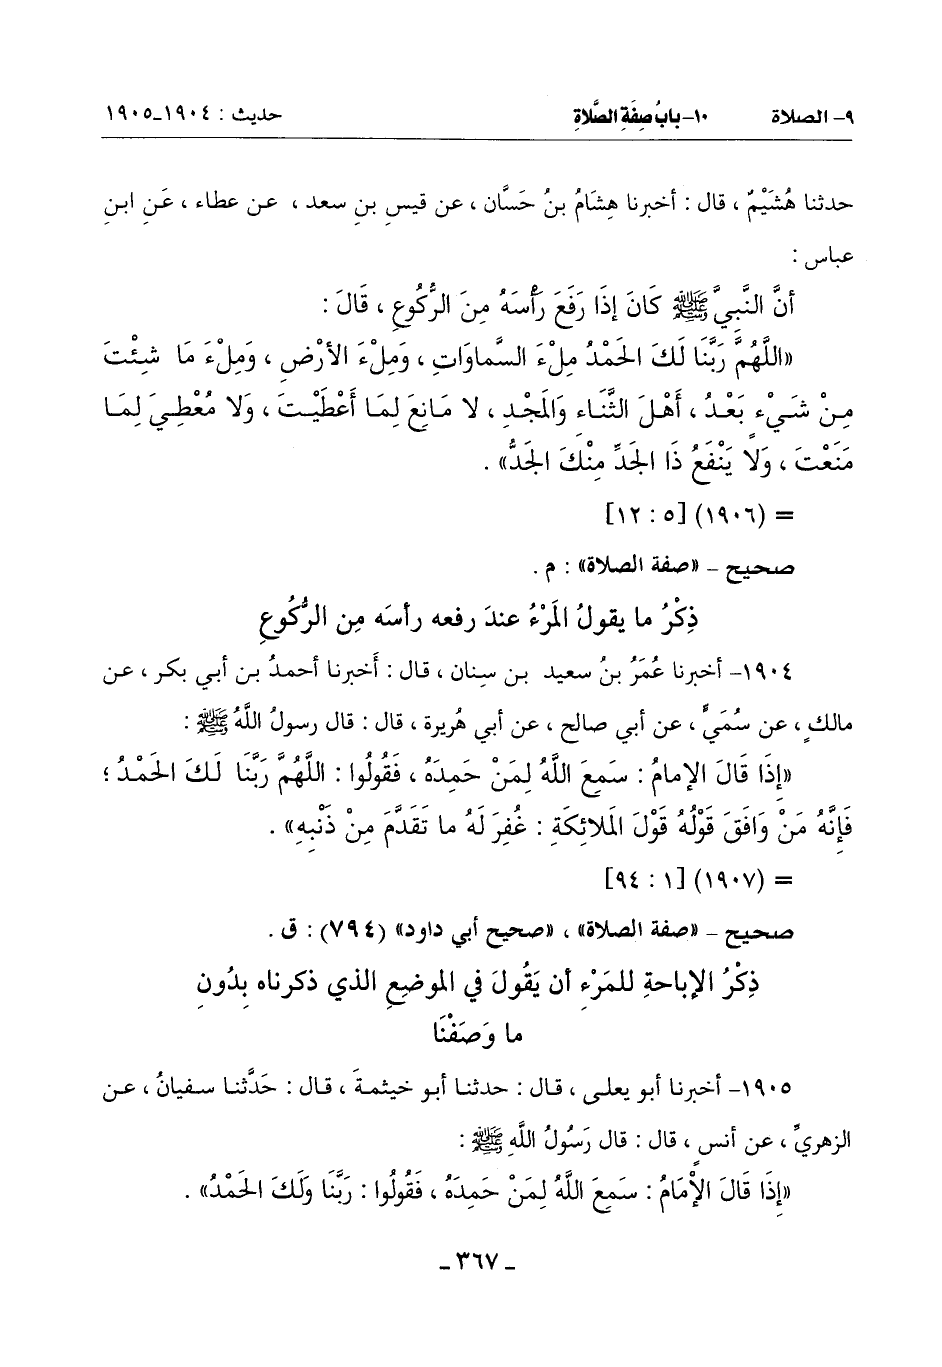 ٩- الصلاة ١٠- بابُ صِفَةِ الصَّلاةِ حديث : ١٩٠٤_١٩٠٥
حدثنا هُشَيْمٌ ، قال : أخبرنا هِشَامُ بنُ حَسَّان ، عن قيسِ بنِ سعد ، عن عطاء ، عَنِ ابنِ
عباس :
أنَّ النَّبِيَّ ﷺ كَانَ إذَا رَفَعَ رَأْسَهُ مِنَ الرُّكُوعِ ، قَالَ :
«اللَّهُمَّ رَبَّنَا لَكَ الحَمْدُ مِلْءَ السَّماوَاتِ ، وَمِلْءَ الأرْضِ ، وَمِلْءَ مَا شِئْتَ
مِنْ شَيْءٍ بَعْدُ ، أَهْلَ الثَّنَاءِ وَالمَجْدِ ، لا مَانِعَ لِمَا أَعْطَيْتَ ، وَلا مُعْطِيَ لِمَا
مَنَعْتَ ، وَلا يَنْفَعُ ذَا الجَدِّ مِنْكَ الجَدُّ» .
= (١٩٠٦) [٥ : ١٢]
صحيح _ «صفة الصلاة» : م .
ذِكْرُ ما يقولُ المَرْءُ عندَ رفعه رأسَه مِن الرُّكُوعِ
١٩٠٤- أخبرنا عُمَرُ بنُ سعيد بن سِنان ، قال : أَخبرنا أحمدُ بن أبي بكر ، عن
مالكٍ ، عن سُمَيٍّ ، عن أبي صالح ، عن أبي هُريرة ، قال : قال رسولُ اللَّهُ ﷺ :
«إذَا قَالَ الإمامُ : سَمِعَ اللَّهُ لِمَنْ حَمِدَهُ ، فَقُولُوا : اللَّهُمَّ رَبَّنَا لَكَ الحَمْدُ ؛
فَإنَّهُ مَنْ وَافَقَ قَوْلُهُ قَوْلَ المَلائِكَةِ : غُفِرَ لَهُ ما تَقَدَّمَ مِنْ ذَنْبِهِ» .
= (١٩٠٧) [١ : ٩٤]
صحيح _ «صفة الصلاة» ، «صحيح أبي داود» (٧٩٤) : ق .
ذِكْرُ الإباحةِ للمَرْءِ أن يَقُولَ في الموضِعِ الذي ذكرناه بِدُونِ
ما وَصَفْنَا
١٩٠٥- أخبرنا أبو يعلى ، قال : حدثنا أبو خيثمةَ ، قال : حَدَّثنا سفيانُ ، عن
الزهريِّ ، عن أنسٍ ، قال : قال رَسُولُ اللَّهِ ﷺ :
«إذَا قَالَ الإْمَامُ : سَمِعَ اللَّهُ لِمَنْ حَمِدَهُ ، فَقُولُوا : رَبَّنَا وَلَكَ الحَمْدُ» .
_ ٣٦٧ _